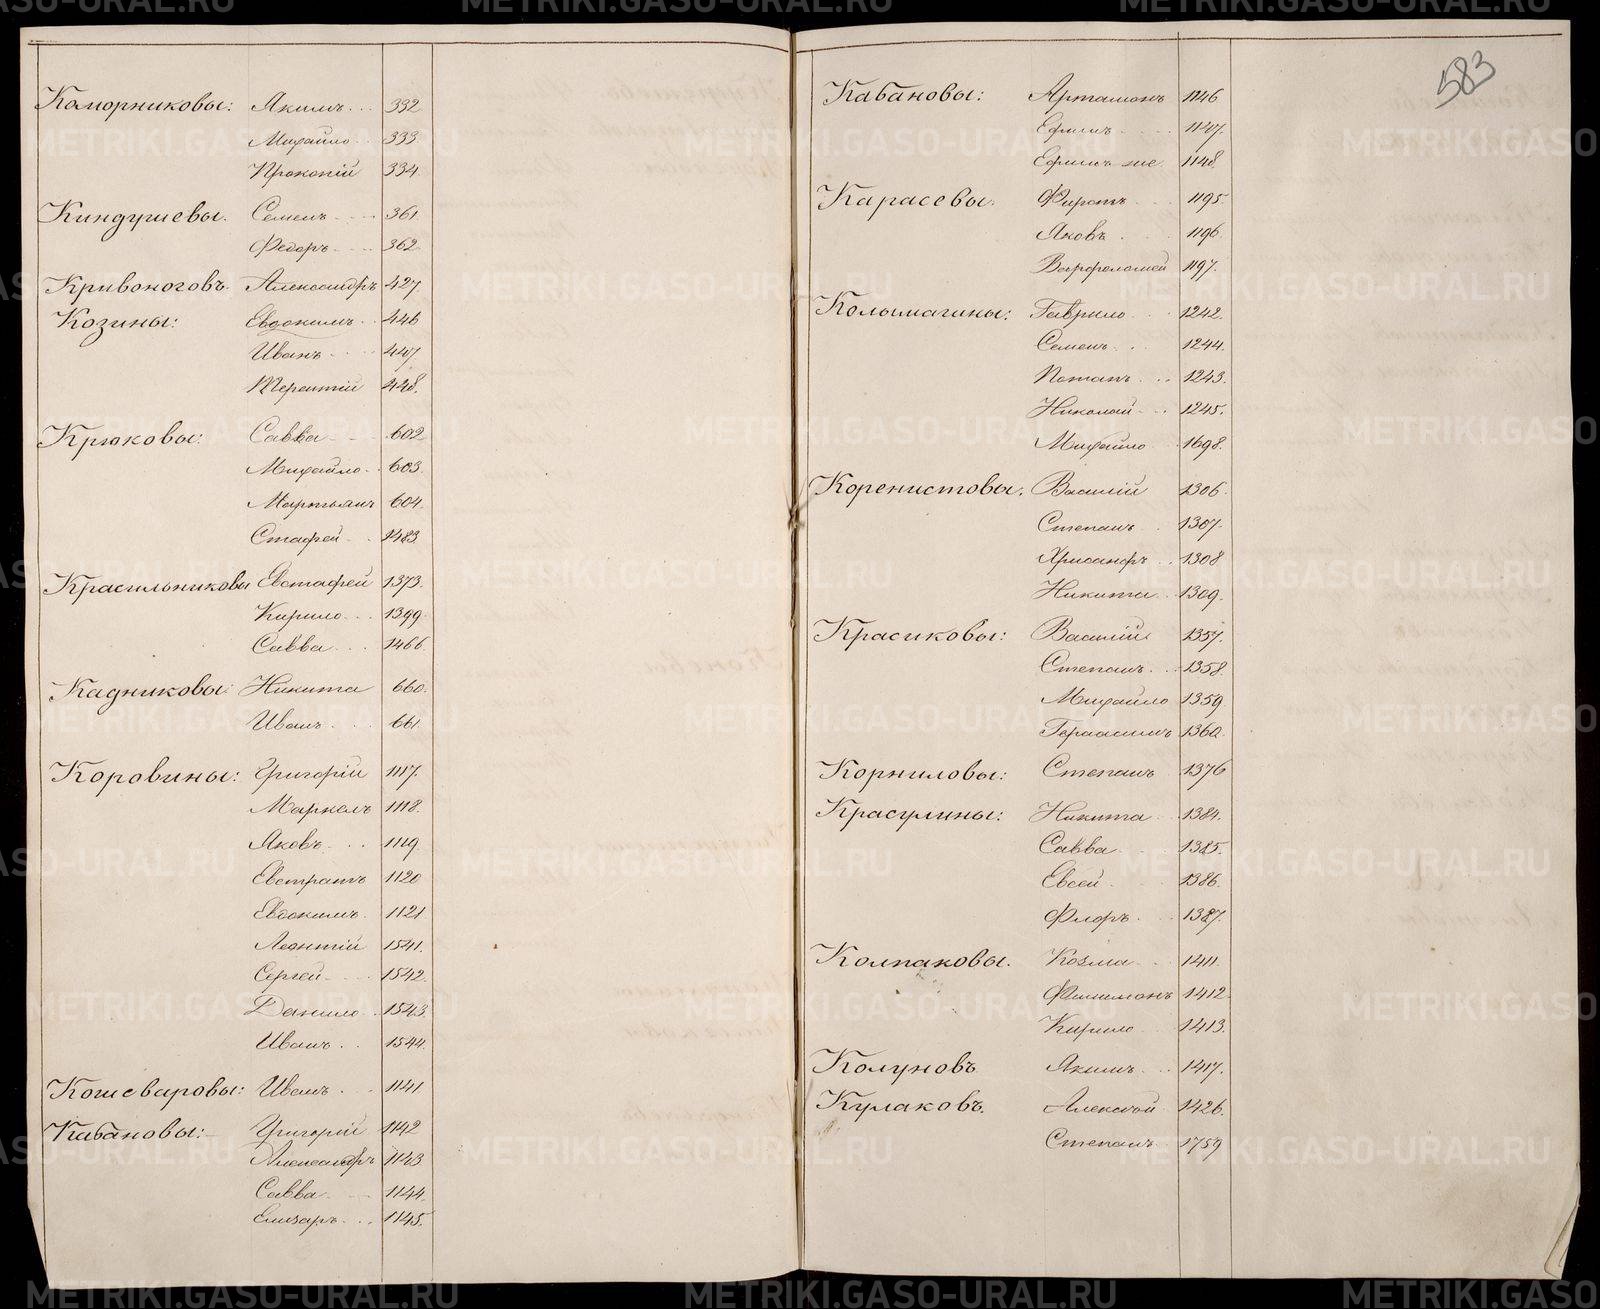 Каморниковы: Якимъ 332
Михайло 333
Прокопій 334
Киндушевы. Семенъ 361
Федоръ 362
Кривоноговъ. Александръ 427
Козины: Евдокимъ 446
Иванъ 447
Терентій 448.
Крюковы: Савва 602
Михайло 603.
Мартьянъ 604.
Стафей 1483
Красильниковы Евстафей 1373.
Кирило 1399
Савва 1466
Кадниковы: Никита 660.
Иванъ 661.
Коровины: Григорій 1117.
Маркелъ 1118.
Яковъ 1119
Евстратъ 1120
Евдокимъ 1121
Леонтій 1541.
Сергей 1542.
Данило 1543.
Иванъ 1544.
Кошеваровы: Иванъ 1141
Кабановы: Григорій 1142
Александръ 1143
Савва 1144.
Елизаръ 1145.
583
Кабановы: Артамонъ 1146
Ефимъ 1147.
Ефимъ же 1148.
Карасевы. Фирстъ 1195.
Яковъ 1196
Варфоломей 1197.
Колымагины: Гаврило 1242.
Семенъ 1244.
Потапъ 1243.
Николай 1245.
Михайло 1698.
Коренистовы. Василій 1306
Степанъ 1307.
Хрисанфъ 1308
Никита 1309.
Красиковы: Василій 1357.
Степанъ 1358.
Михайло 1359
Герасимъ 1360.
Корниловы: Степанъ 1376
Красулины: Никита 1384.
Савва 1385.
Евсей 1386.
Флоръ 1387.
Колпаковы. Козма 1411
Филимонъ 1412
Кирило 1413.
Колуновъ Якимъ 1417.
Кулаковъ. Алексей 1426.
Степанъ 1759
METRIKI.GASO-URAL.RU